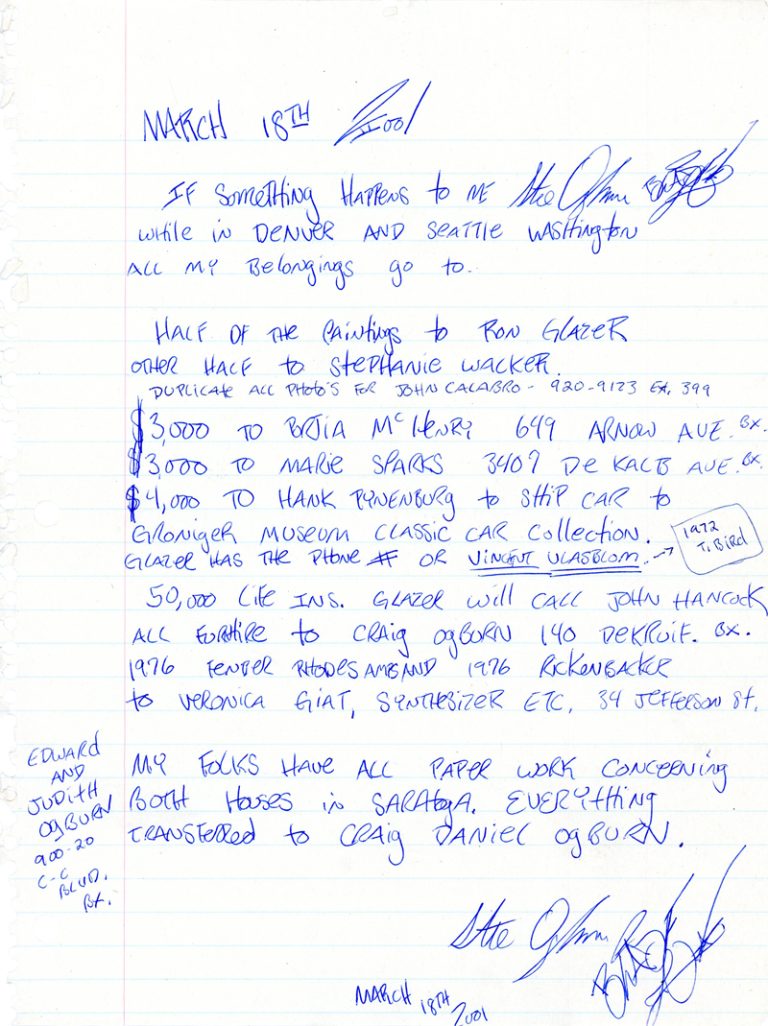 MARCH 18TH 2001
IF SOMETHING HAPPENS TO ME
WHILE IN DENVER AND SEATTLE WASHINGTON
ALL MY BELONGINGS GO TO.
HALF OF THE PAINTINGS TO RON GLAZER
OTHER HALF TO STEPHANIE WACKER.
DUPLICATE ALL PHOTO'S FOR JOHN CALABRO - 920-9123 EX. 399
$3,000 TO BRJIA McHENRY 649 ARNOW AVE. BX.
$3,000 TO MARIE SPARKS 3407 DE KALB AVE. BX.
$4,000 TO HANK PYNENBURG TO SHIP CAR TO
GRONIGER MUSEUM CLASSIC CAR COLLECTION.
GLAZER HAS THE PHONE # OR VINCENT VLASBLOM. →
1972
T. BIRD
50,000 LIFE INS. GLAZER WILL CALL JOHN HANCOCK
ALL TO CRAIG OGBURN 140 DEKRUIF. BX.
1976 FENDER RHODES AMB AND 1976 RICKENBACKER
TO VERONICA GIAT, SYNTHESIZER ETC, 34 JEFFERSON St.
MY FOLKS HAVE ALL PAPER WORK CONCERNING
BOTH HOUSES IN SARATOGA. EVERYTHING
TRANSFERRED TO CRAIG DANIEL OGBURN.
EDWARD
AND
JUDITH
OGBURN
900-20
C-C
BLVD.
BX.
MARCH 18TH 2001